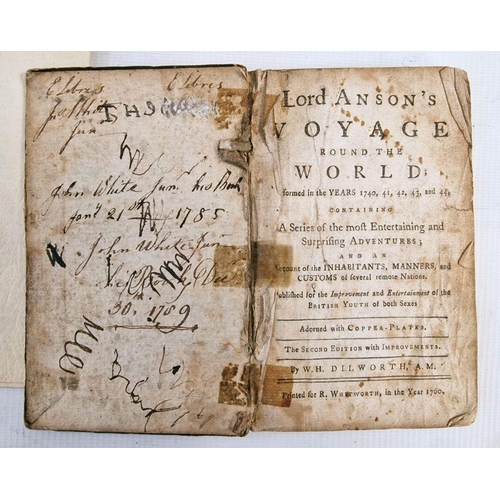 Ex Libris Ex Libris
Jun
John White Jun. his Book
Jany 21st 1785
John White Jun
his Book
30th 1789
Lord Anson's
VOYAGE
ROUND THE
WORLD;
formed in the YEARS 1740, 41, 42, 43, and 44,
CONTAINING
A Series of the most Entertaining and
Surprising ADVENTURES;
AND AN
count of the INHABITANTS, MANNERS, and
CUSTOMS of several remote Nations.
Published for the Improvement and Entertainment of the
BRITISH YOUTH of both Sexes
Adorned with COPPER-PLATES.
The SECOND EDITION with IMPROVEMENTS.
By W. H. DILWORTH, A. M.
Printed for R. WHITWORTH, in the Year 1760.